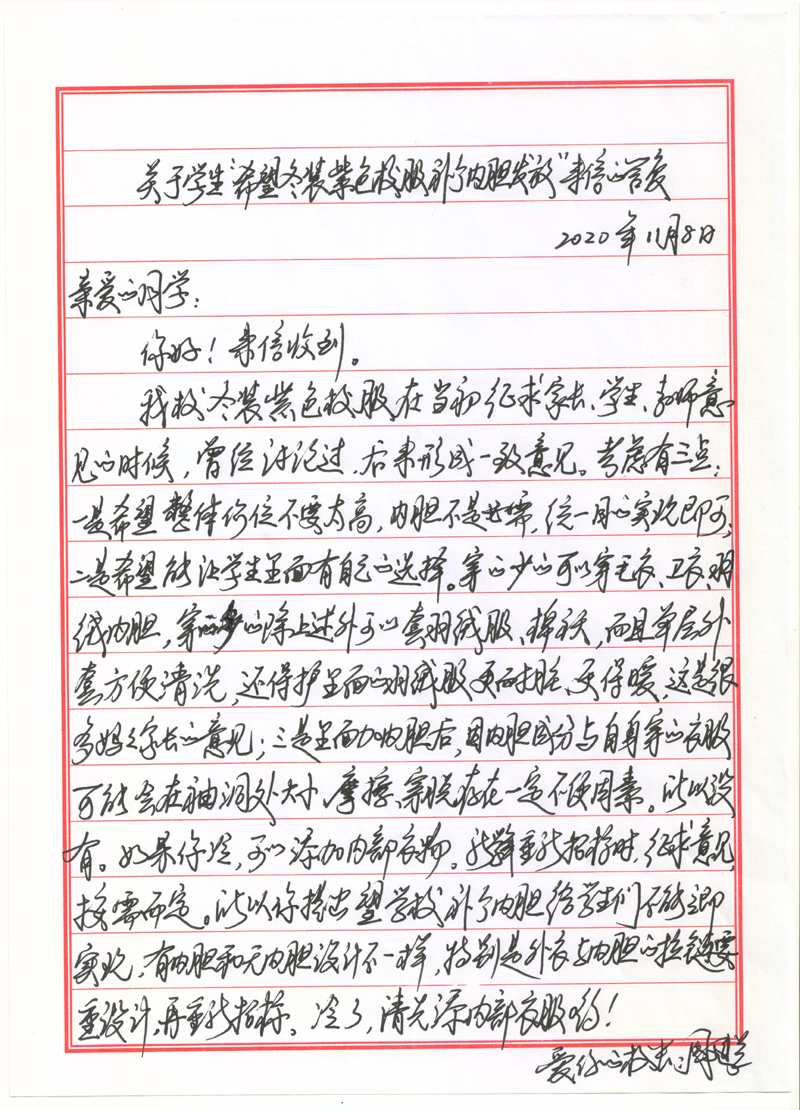 关于学生“希望冬装紫色校服补个内胆发放”来信的答复
2020年11月8日
亲爱的同学：
你好！来信收到。
我校冬装紫色校服在当初征求家长、学生、教师意
见的时候，曾经讨论过，后来形成一致意见。考虑有三点：
一是希望整体价位不要太高，内胆不是必需，统一用的实现即可；
二是希望能让学生里面有自己的选择。穿的少的可以穿毛衣、卫衣、羽
绒内胆，穿的多的除上述外可以套羽绒服、棉袄，而且单层外
套方便清洗，还保护里面的羽绒服更耐脏、更保暖，这是很
多妈妈家长的意见；三是里面加内胆后，因内胆成分与自身穿的衣服
可能会在袖洞处大小、摩擦、穿脱存在一定不便因素。所以没
有。如果你冷，可以添加内部衣物。重新招标时，征求意见，
按需而定。所以你提出望学校补个内胆给学生们不能立即
实现，有内胆和无内胆设计不一样，特别是外衣与内胆的拉链要
重设计，再重新招标。冷了，请先添内部衣服哟！
爱你的校长：周